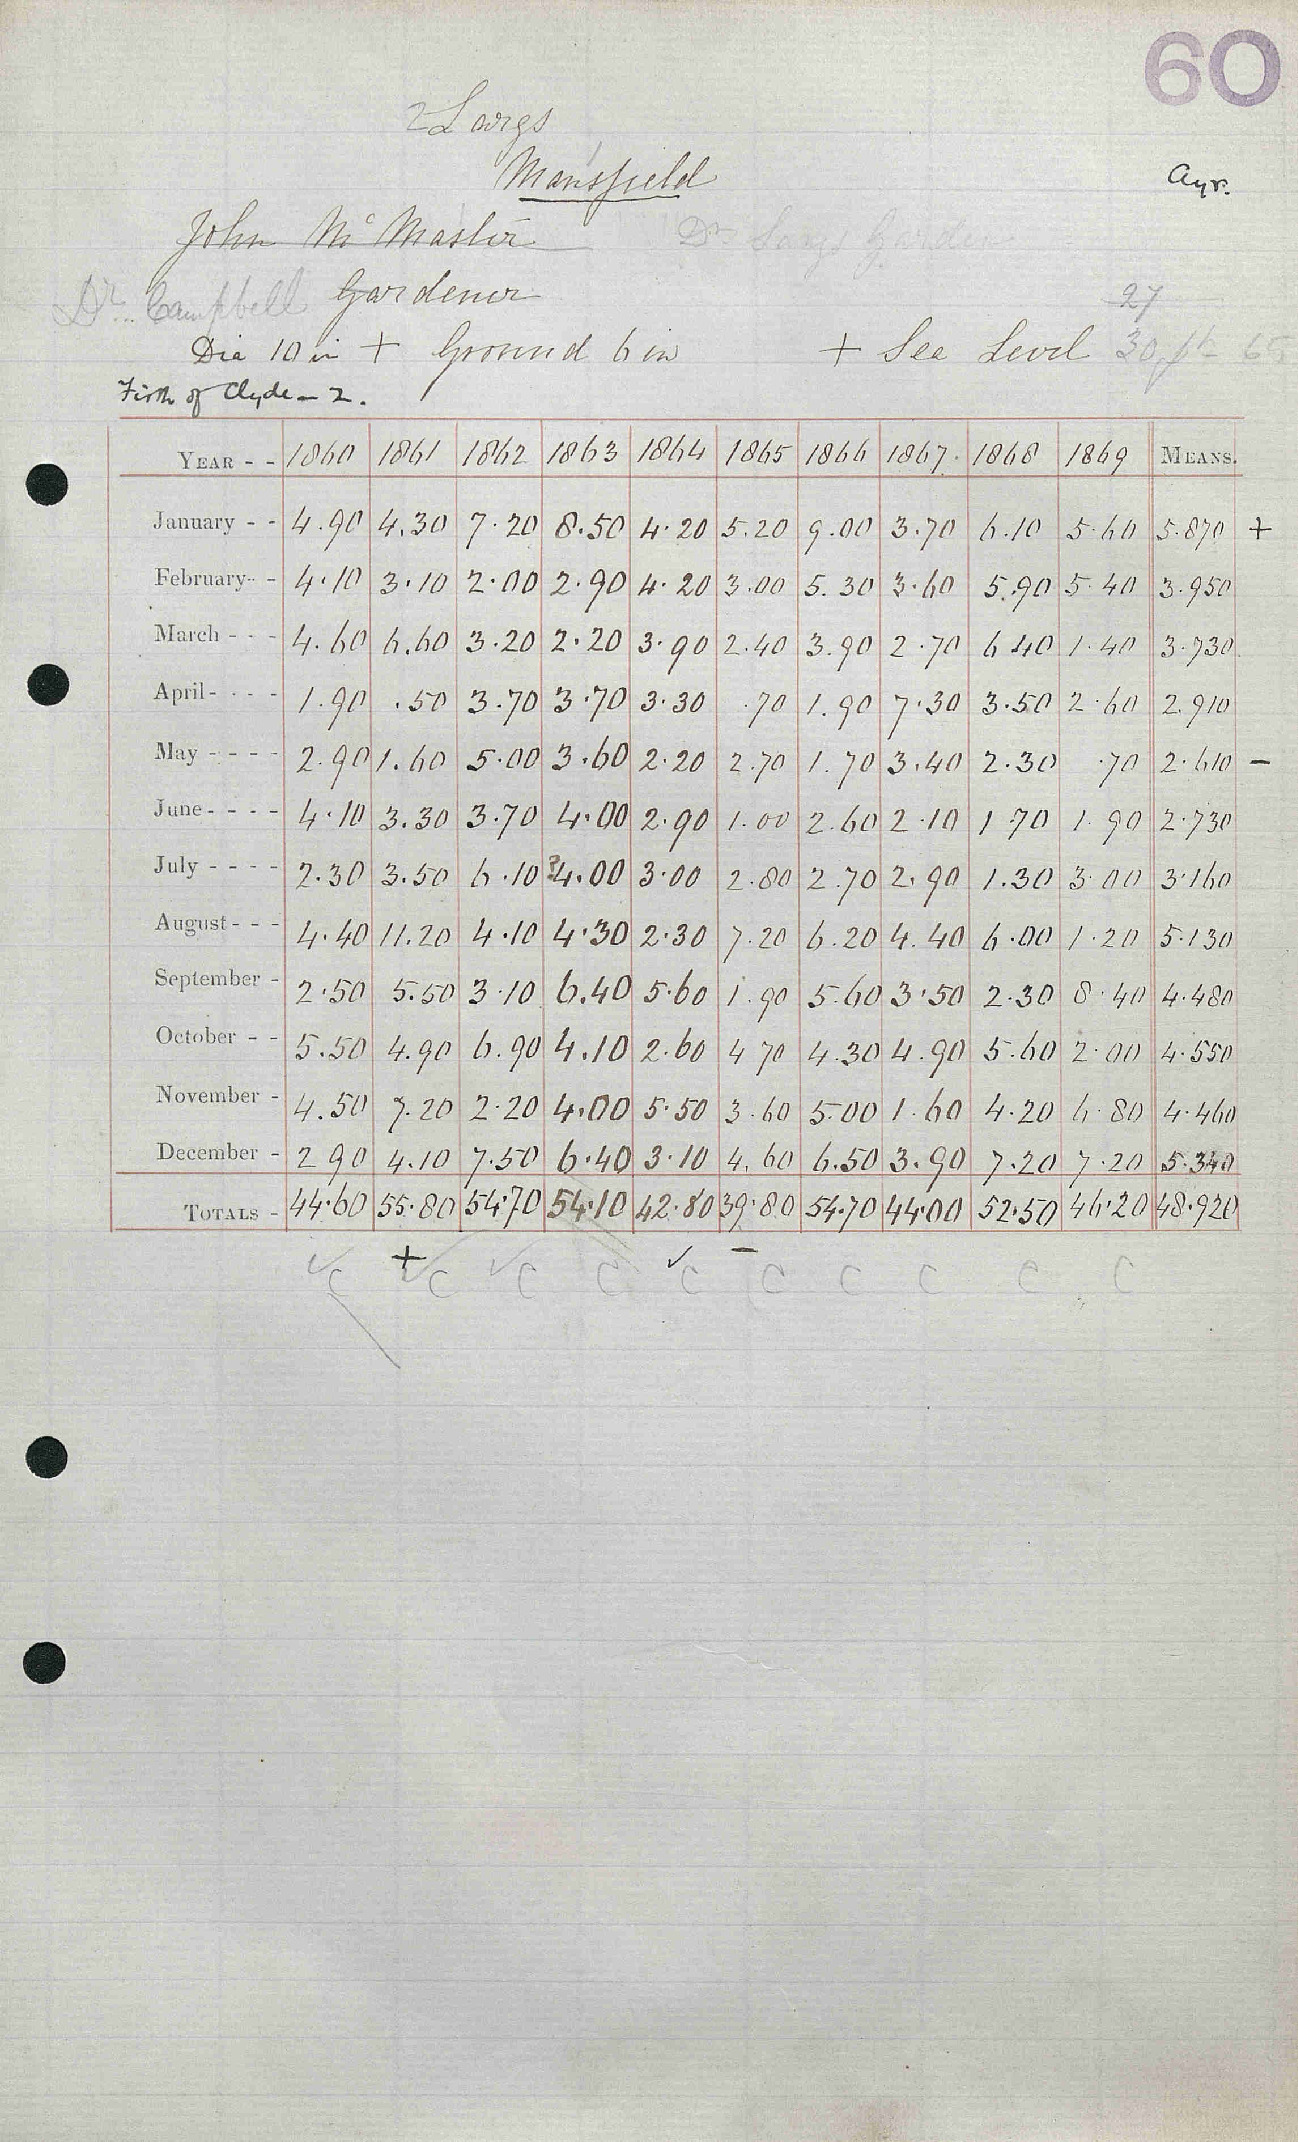 60
2 Largs
Mansfield
Ayr.
John Mc Master
Dr Largs Garden
Dr. Campbell Gardener
27
Dia 10 in + Ground 6 in + Sea Level 30 ft 65
Firth of Clyde - 2.
YEAR - - 1860 1861 1862 1863 1864 1865 1866 1867. 1868 1869 MEANS.
January - - 4.90 4.30 7.20 8.50 4.20 5.20 9.00 3.70 6.10 5.60 5.870 +
February - - 4.10 3.10 2.00 2.90 4.20 3.00 5.30 3.60 5.90 5.40 3.950
March - - - 4.60 6.60 3.20 2.20 3.90 2.40 3.90 2.70 6 40 1.40 3.730
April - - - - 1.90 .50 3.70 3.70 3.30 .70 1.90 7.30 3.50 2.60 2.910
May - - - - 2.90 1.60 5.00 3.60 2.20 2.70 1.70 3.40 2.30 .70 2.610 -
June - - - - 4.10 3.30 3.70 4.00 2.90 1.00 2.60 2.10 1 70 1.90 2.730
July - - - - 2.30 3.50 6.10 ?4.00 3.00 2.80 2.70 2.90 1.30 3.00 3.160
August - - - 4.40 11.20 4.10 4.30 2.30 7.20 6.20 4.40 6.00 1.20 5.130
September - 2.50 5.50 3.10 6.40 5.60 1.90 5.60 3.50 2.30 8.40 4.480
October - - 5.50 4.90 6.90 4.10 2.60 4 70 4.30 4.90 5.60 2.00 4.550
November - 4.50 7.20 2.20 4.00 5.50 3.60 5.00 1.60 4.20 6.80 4.460
December - 2 90 4.10 7.50 6.40 3.10 4.60 6.50 3.90 7.20 7.20 5.340
TOTALS - 44.60 55.80 54.70 54.10 42.80 39.80 54.70 44.00 52.50 46.20 48.920
+ ✓ -
✓ C ✓ C ✓ C C C C C C C C